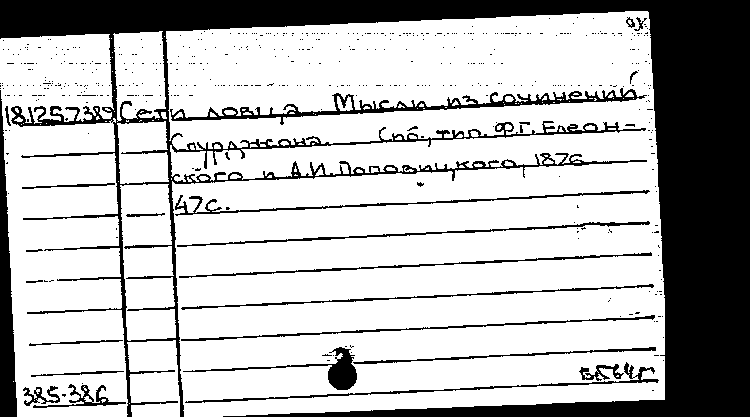 18.125.7.389 Сети ловца. Мысли из сочинений
Спурджона. Спб., тип. Ф.Г. Елеон-
ского и А.И. Поповицкого, 1876
47с.
385-386